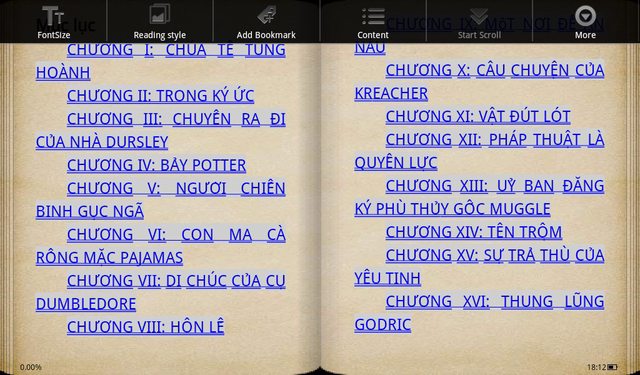 FontSize
Reading style
Add Bookmark
Content
Start Scroll
More
Mục lục
CHƯƠNG I: CHÚA TỂ TUNG
HOÀNH
CHƯƠNG II: TRONG KÝ ỨC
CHƯƠNG III: CHUYẾN RA ĐI
CỦA NHÀ DURSLEY
CHƯƠNG IV: BẢY POTTER
CHƯƠNG V: NGƯƠI CHIẾN
BINH GỤC NGÃ
CHƯƠNG VI: CON MA CÀ
RỒNG MẶC PAJAMAS
CHƯƠNG VII: DI CHÚC CỦA CỤ
DUMBLEDORE
CHƯƠNG VIII: HÔN LỄ
CHƯƠNG IX: MỘT NƠI ĐỂ ẨN
NÁU
CHƯƠNG X: CÂU CHUYỆN CỦA
KREACHER
CHƯƠNG XI: VẬT ĐÚT LÓT
CHƯƠNG XII: PHÁP THUẬT LÀ
QUYỀN LỰC
CHƯƠNG XIII: UỶ BAN ĐĂNG
KÝ PHÙ THỦY GỐC MUGGLE
CHƯƠNG XIV: TÊN TRỘM
CHƯƠNG XV: SỰ TRẢ THÙ CỦA
YÊU TINH
CHƯƠNG XVI: THUNG LŨNG
GODRIC
0.00%
18:12